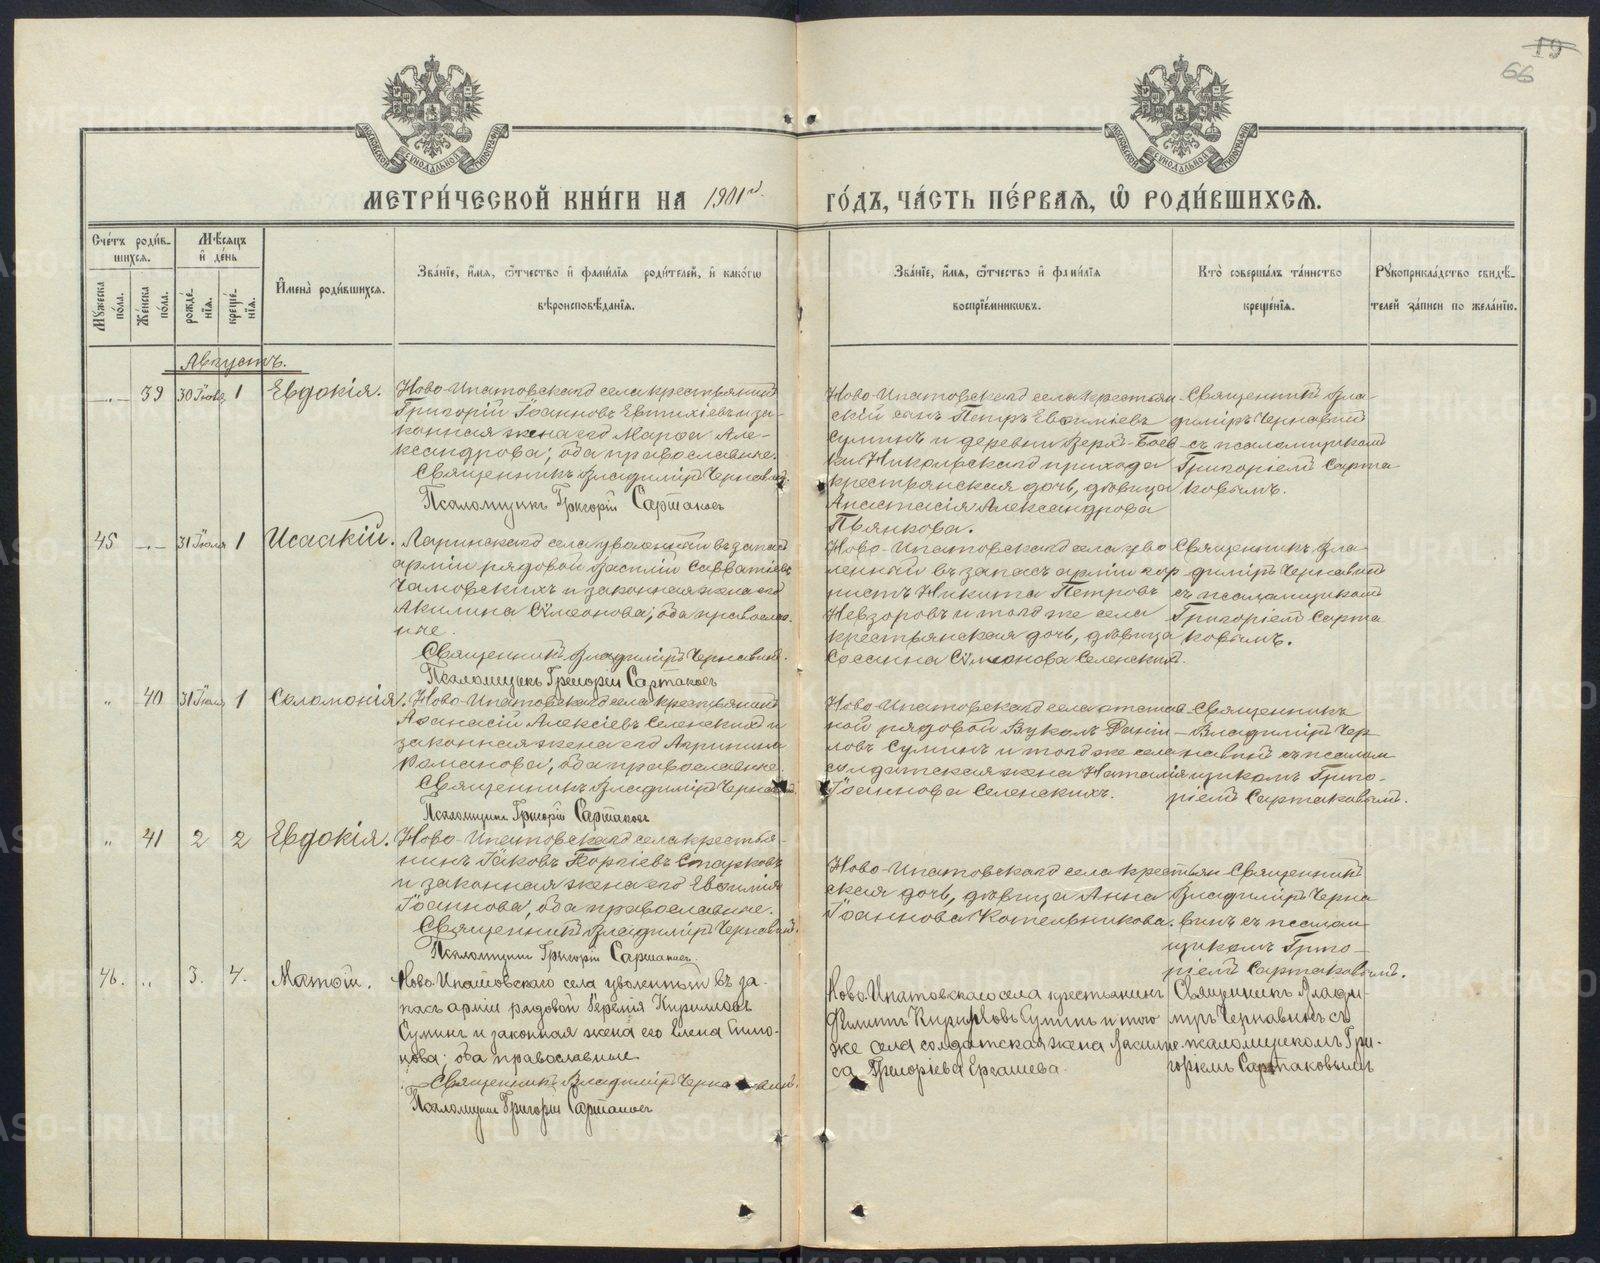 19
66
МЕТРИ́ЧЕСКОЙ КНИ́ГИ НА 1901й
ГО́ДЪ, ЧА́СТЬ ПЕ́РВАѦ, Ѡ РОДИ́ВШИХСѦ.
Сче́тъ роди́в-
шихсѧ.
Мꙋжеска
по́ла.
Же́нска
по́ла.
Мѣ́сѧцъ
и҆ де́нь
рожде́-
нїѧ.
креще́-
нїѧ.
И҆мена̀ роди́вшихсѧ.
Зва́нїе, и҆́мѧ, ѻ҆́тчество и҆ фами́лїѧ роди́телей, и҆ како́гѡ
вѣроисповѣ́данїѧ.
Зва́нїе, и҆́мѧ, ѻ҆́тчество и҆ фами́лїѧ
воспрїе́мникѡвъ.
Кто̀ соверша́лъ та́инство
креще́нїѧ.
Рꙋкоприкла́дство свидѣ́-
телей за́писи по жела́нїю.
Августъ.
39 30 Іюля 1 Евдокія.
Ново-Ипатовскаго села крестьянинъ
Григорій Іоанновъ Евтихіевъ и за-
конная жена его Марѳа Але-
ксандрова; оба православные.
Священникъ Владиміръ Чернавин
Псаломщикъ Григорій Сартаковъ
Ново-Ипатовскаго села крестьян-
скій сынъ Петръ Евѳиміевъ
Суминъ и деревни Верх-Боев
ки Никольскаго прихода
крестьянская дочь, дѣвица
Анастасія Александрова
Пьянкова.
Священникъ Вла-
диміръ Чернавин
съ псаломщикомъ
Григоріемъ Сарта
ковымъ.
45 31 Іюля 1 Исаакій.
Ларинскаго села уволенный въ запасъ
арміи рядовой Василій Савватіевъ
Чамовскихъ и законная жена его
Акилина Сѵмеонова; оба православ-
ные.
Священникъ Владиміръ Чернавин.
Псаломщикъ Григорій Сартаковъ
Ново-Ипатовскаго села уво
ленный въ запасъ арміи гор
нистъ Никита Петровъ
Невзоровъ и того же села
крестьянская дочь, дѣвица
Сѵмеонова Селенских.
Священникъ Вла-
диміръ Чернавин
съ псаломщикомъ
Григоріемъ Сарта
ковымъ.
40 31 Іюля 1 Соломонія.
Ново-Ипатовскаго села крестьянинъ
Аѳанасій Алексіевъ Селенских и
законная жена его Агрипина
Романова, оба православные.
Священникъ Владиміръ Чернавин
Псаломщикъ Григорій Сартаковъ
Ново-Ипатовскаго села отстав
ной рядовой Вуколъ Даніи-
ловъ Суминъ и того же села
солдатская жена Наталія
Іоаннова Селенскихъ.
Священникъ
Владиміръ Чер-
навинъ съ псалом
щикомъ Григо-
ріемъ Сартаковымъ.
41 2 2 Евдокія.
Ново-Ипатовскаго села крестья-
нинъ Іаковъ Георгіевъ Старковъ
и законная жена его Евѳимія
Іоаннова, оба православные.
Священникъ Владиміръ Чернавин.
Псаломщикъ Григорій Сартаковъ.
Ново-Ипатовскаго села крестьян
ская дочь, дѣвица Анна
Іоаннова Котельникова.
Священникъ
Владиміръ Черна
винъ съ псалом
щикомъ Григо-
ріемъ Сартаковымъ.
46. 3. 4. Матѳій.
Ново-Ипатовскаго села уволенный въ за-
пасъ арміи рядовой Іеремія Кириловъ
Суминъ и законная жена его Елена Симо-
нова; оба православные.
Священникъ Владиміръ Чернавин.
Псаломщикъ Григорій Сартаковъ
Ново-Ипатовскаго села крестьянинъ
Филиппъ Кириловъ Суминъ и того
же села солдатская жена Васили-
са Григоріева Ергашева.
Священникъ Влади-
міръ Чернавинъ съ
псаломщикомъ Гри-
горіемъ Сартаковымъ
METRIKI.GASO-URAL.RU